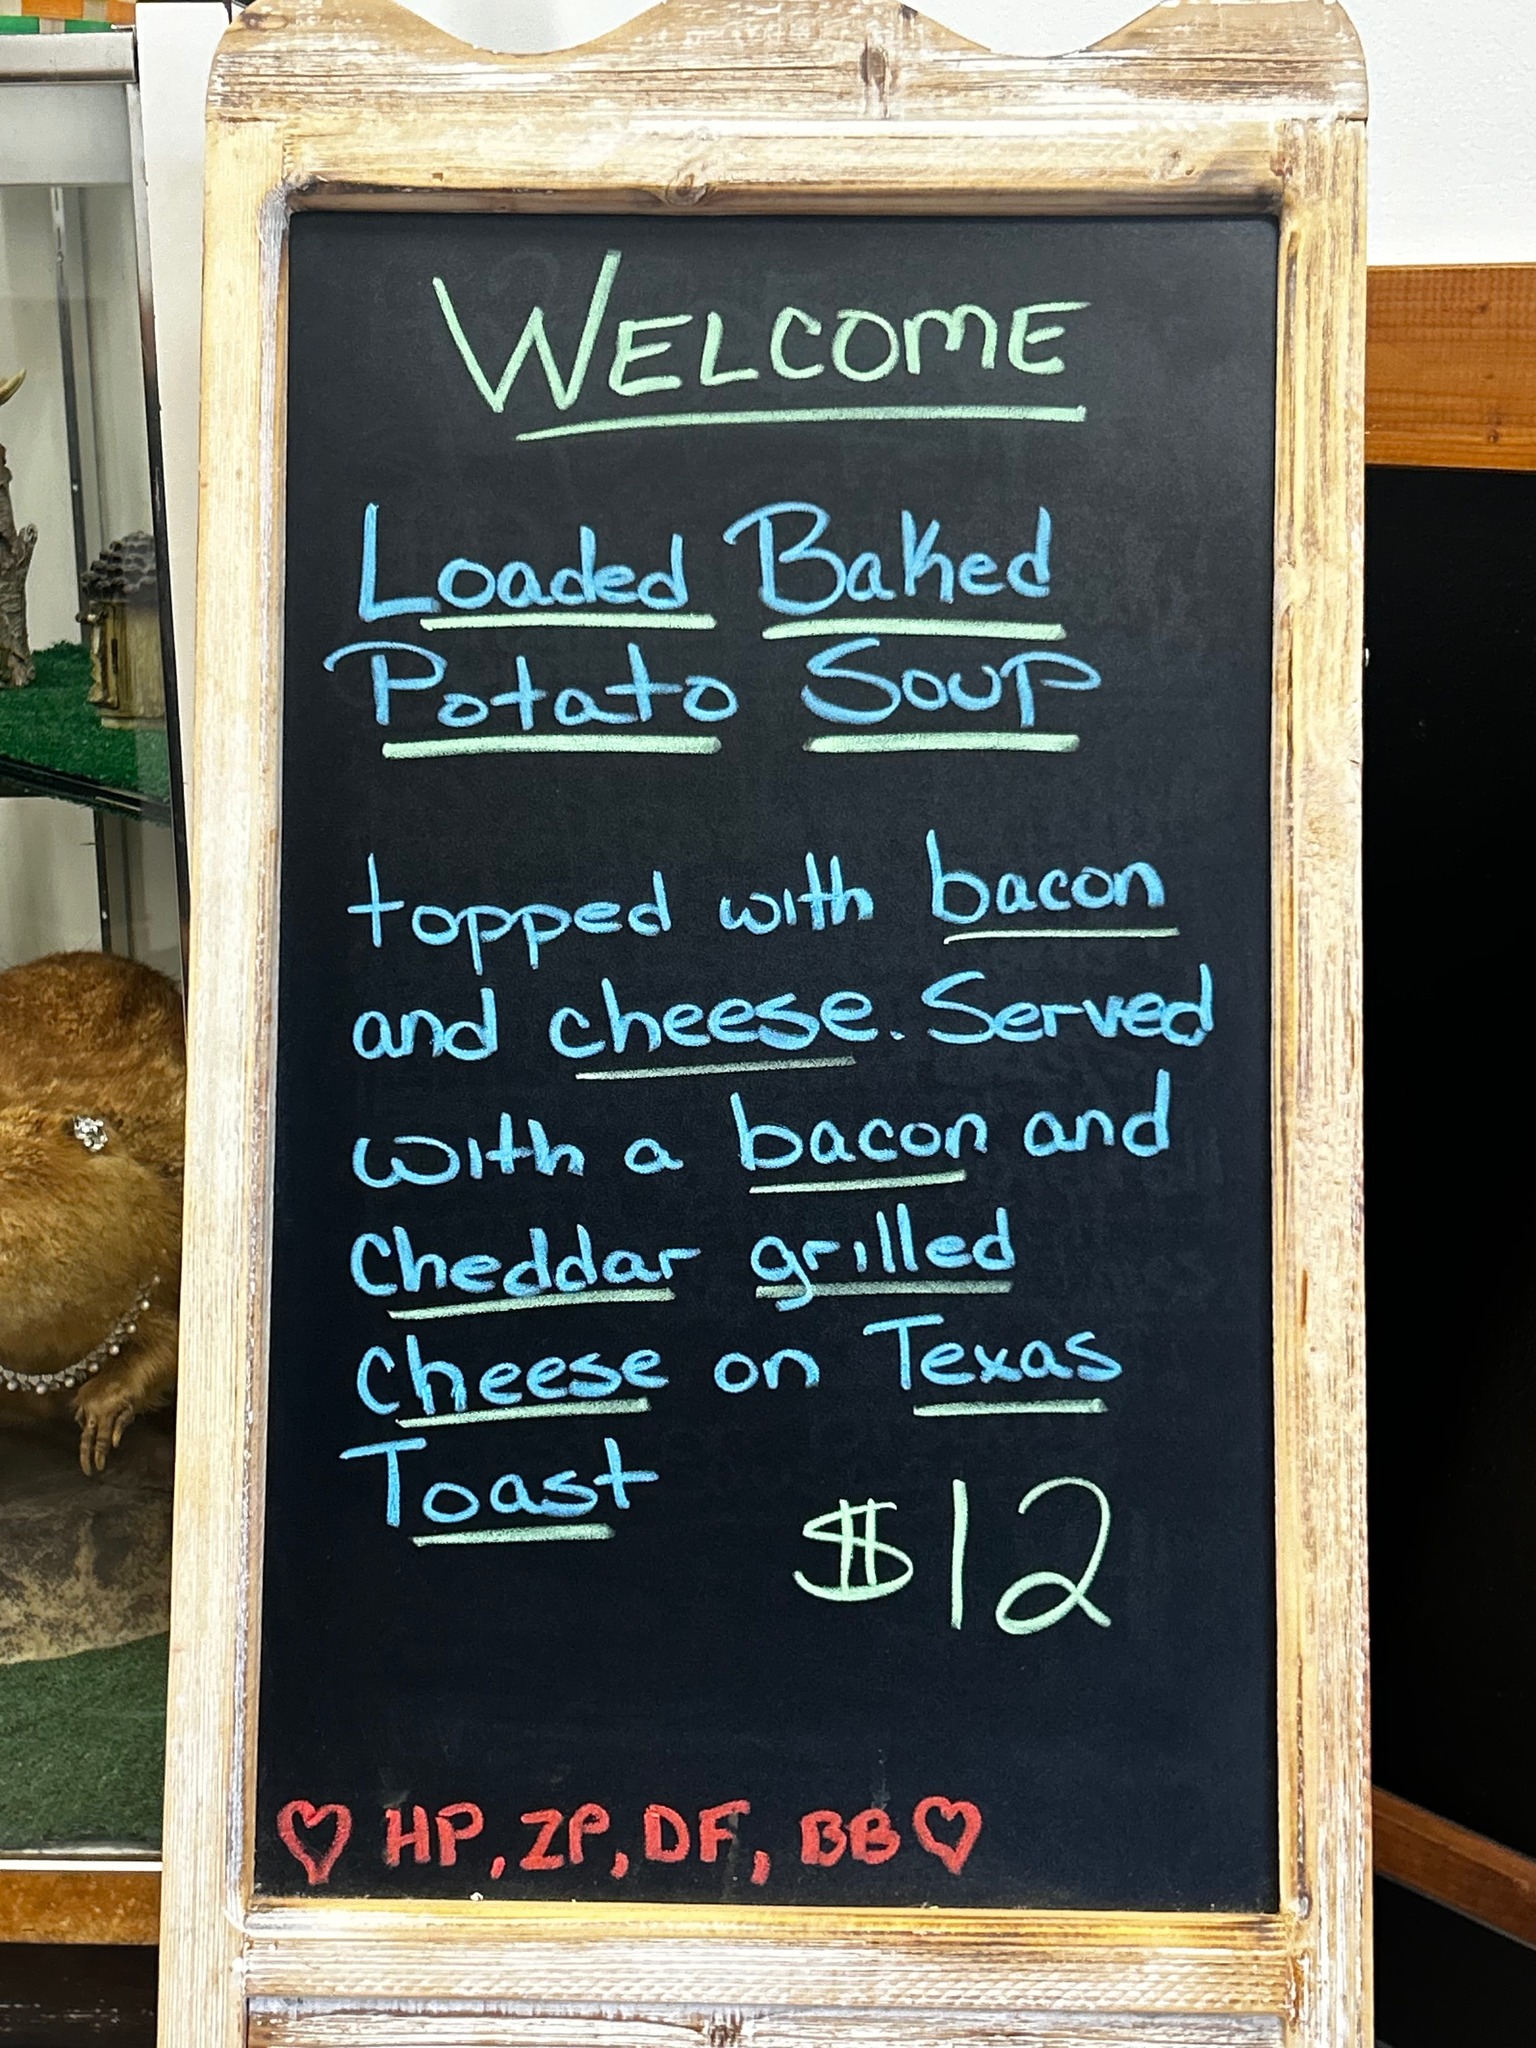 WELCOME
Loaded Baked
Potato Soup
topped with bacon
and cheese. Served
with a bacon and
Cheddar grilled
Cheese on Texas
Toast
$12
♡ HP, ZP, DF, BB ♡